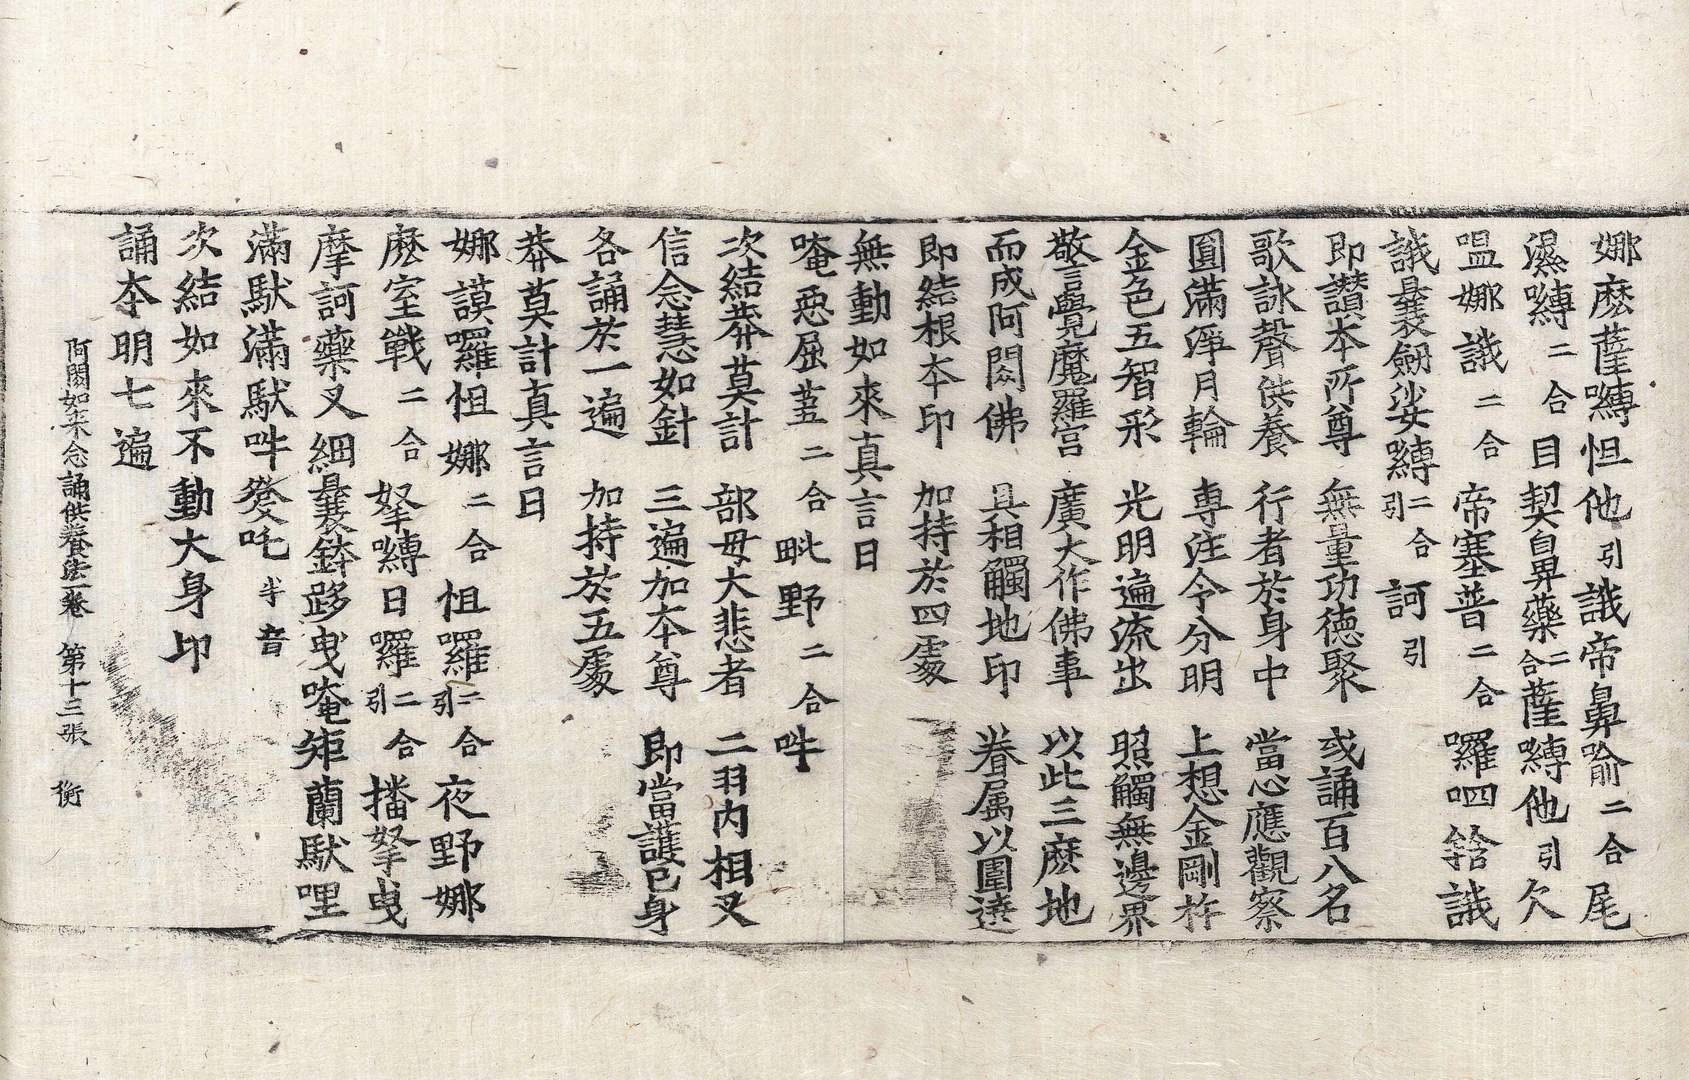 娜麽薩嚩怛他引誐帝鼻喻二合尾
濕嚩二合目契毗藥二合薩嚩他引欠
嗢娜誐二合帝塞普二合囉呬𤚥誐
誐曩劒娑嚩二合引訶引
即讚本所尊　無量功德聚　或誦百八名
歌詠聲供養　行者於身中　當心應觀察
圓滿淨月輪　專注令分明　上想金剛杵
金色五智形　光明遍流出　照觸無邊界
敬言覺魔羅宮　廣大作佛事　以此三麽地
而成阿閦佛　具相觸地印　眷属以圍遶
即結根本印　加持於四處
無動如來真言曰
唵惡屈蒭二合毗野二合吽
次結莽莫計　部母大悲者　二羽内相叉
信念慧如針　三遍加本尊　即當護己身
各誦於一遍　加持於五處
莽莫計真言曰
娜謨囉怛娜二合怛囉二合引夜野娜
麽室戰二合拏嚩日囉二合引播拏曳
摩訶藥叉細曩鉢跢曳唵矩蘭馱哩
滿馱滿馱吽發吒半音
次結如來不動大身印
誦本明七遍
阿閦如来念誦供養法一卷　第十三張　衡